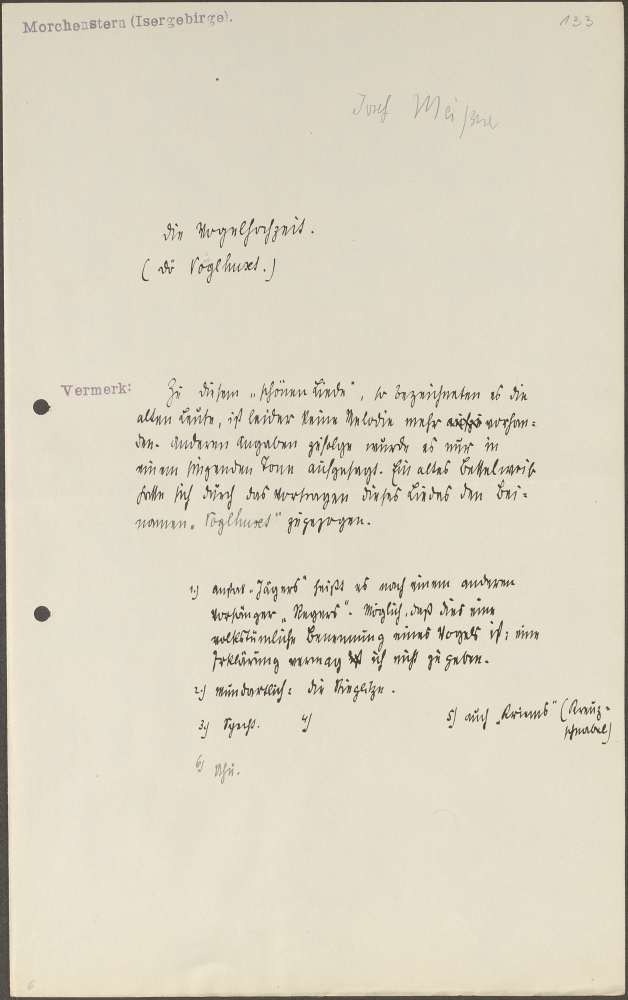 Morchenstern (Isergebirge).
133
Josef Meißner
Die Vogelhochzeit.
(Dö Voglhuxt.)
Vermerk:
Zu diesem „schönen Liede", so bezeichneten es die
alten Leute, ist leider keine Melodie mehr vorhan=
den. Anderen Angaben zufolge wurde es nur in
einem singenden Tone aufgesagt. Ein altes Bettelweib
hatte sich durch das Vortragen dieses Liedes den Bei=
namen „Voglhuxt" zugezogen.
1.) anstat „Jägers" heißt es nach einem anderen
Vorsänger „Regers". Möglich, daß dies eine
volkstümliche Benennung eines Vogels ist; eine
Erklärung vermag ich nicht zu geben.
2.) mundartlich: die Stieglitze.
3.) Specht.
4)
5) auch „Kriems" (Kreuz=
schnabel)
6) Uhu.
6